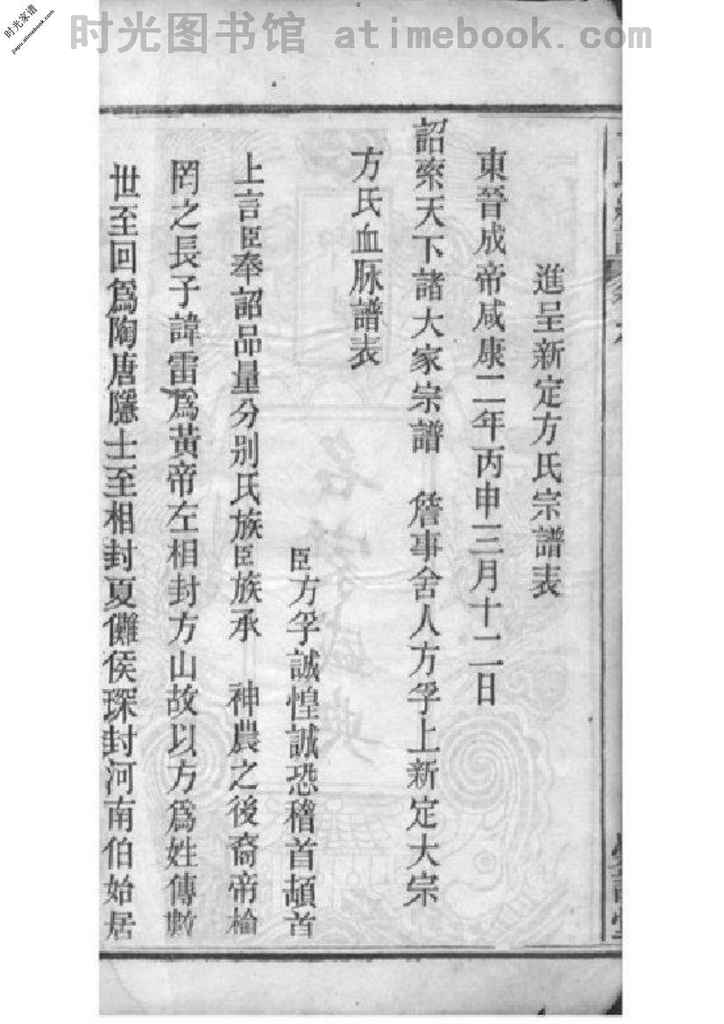 时光图书馆 atimebook.com
时光家谱
jiapu.atimebook.com
進呈新定方氏宗譜表
東晉成帝咸康二年丙申三月十二日
詔索天下諸大家宗譜 詹事舍人方孚上新定大宗
方氏血脉譜表
臣方孚誠惶誠恐稽首頓首
上言臣奉詔品量分别氏族臣族承 神農之後裔帝榆
罔之長子諱雷爲黃帝左相封方山故以方爲姓傳數
世至回爲陶唐隱士至相封夏儺侯琛封河南伯始居